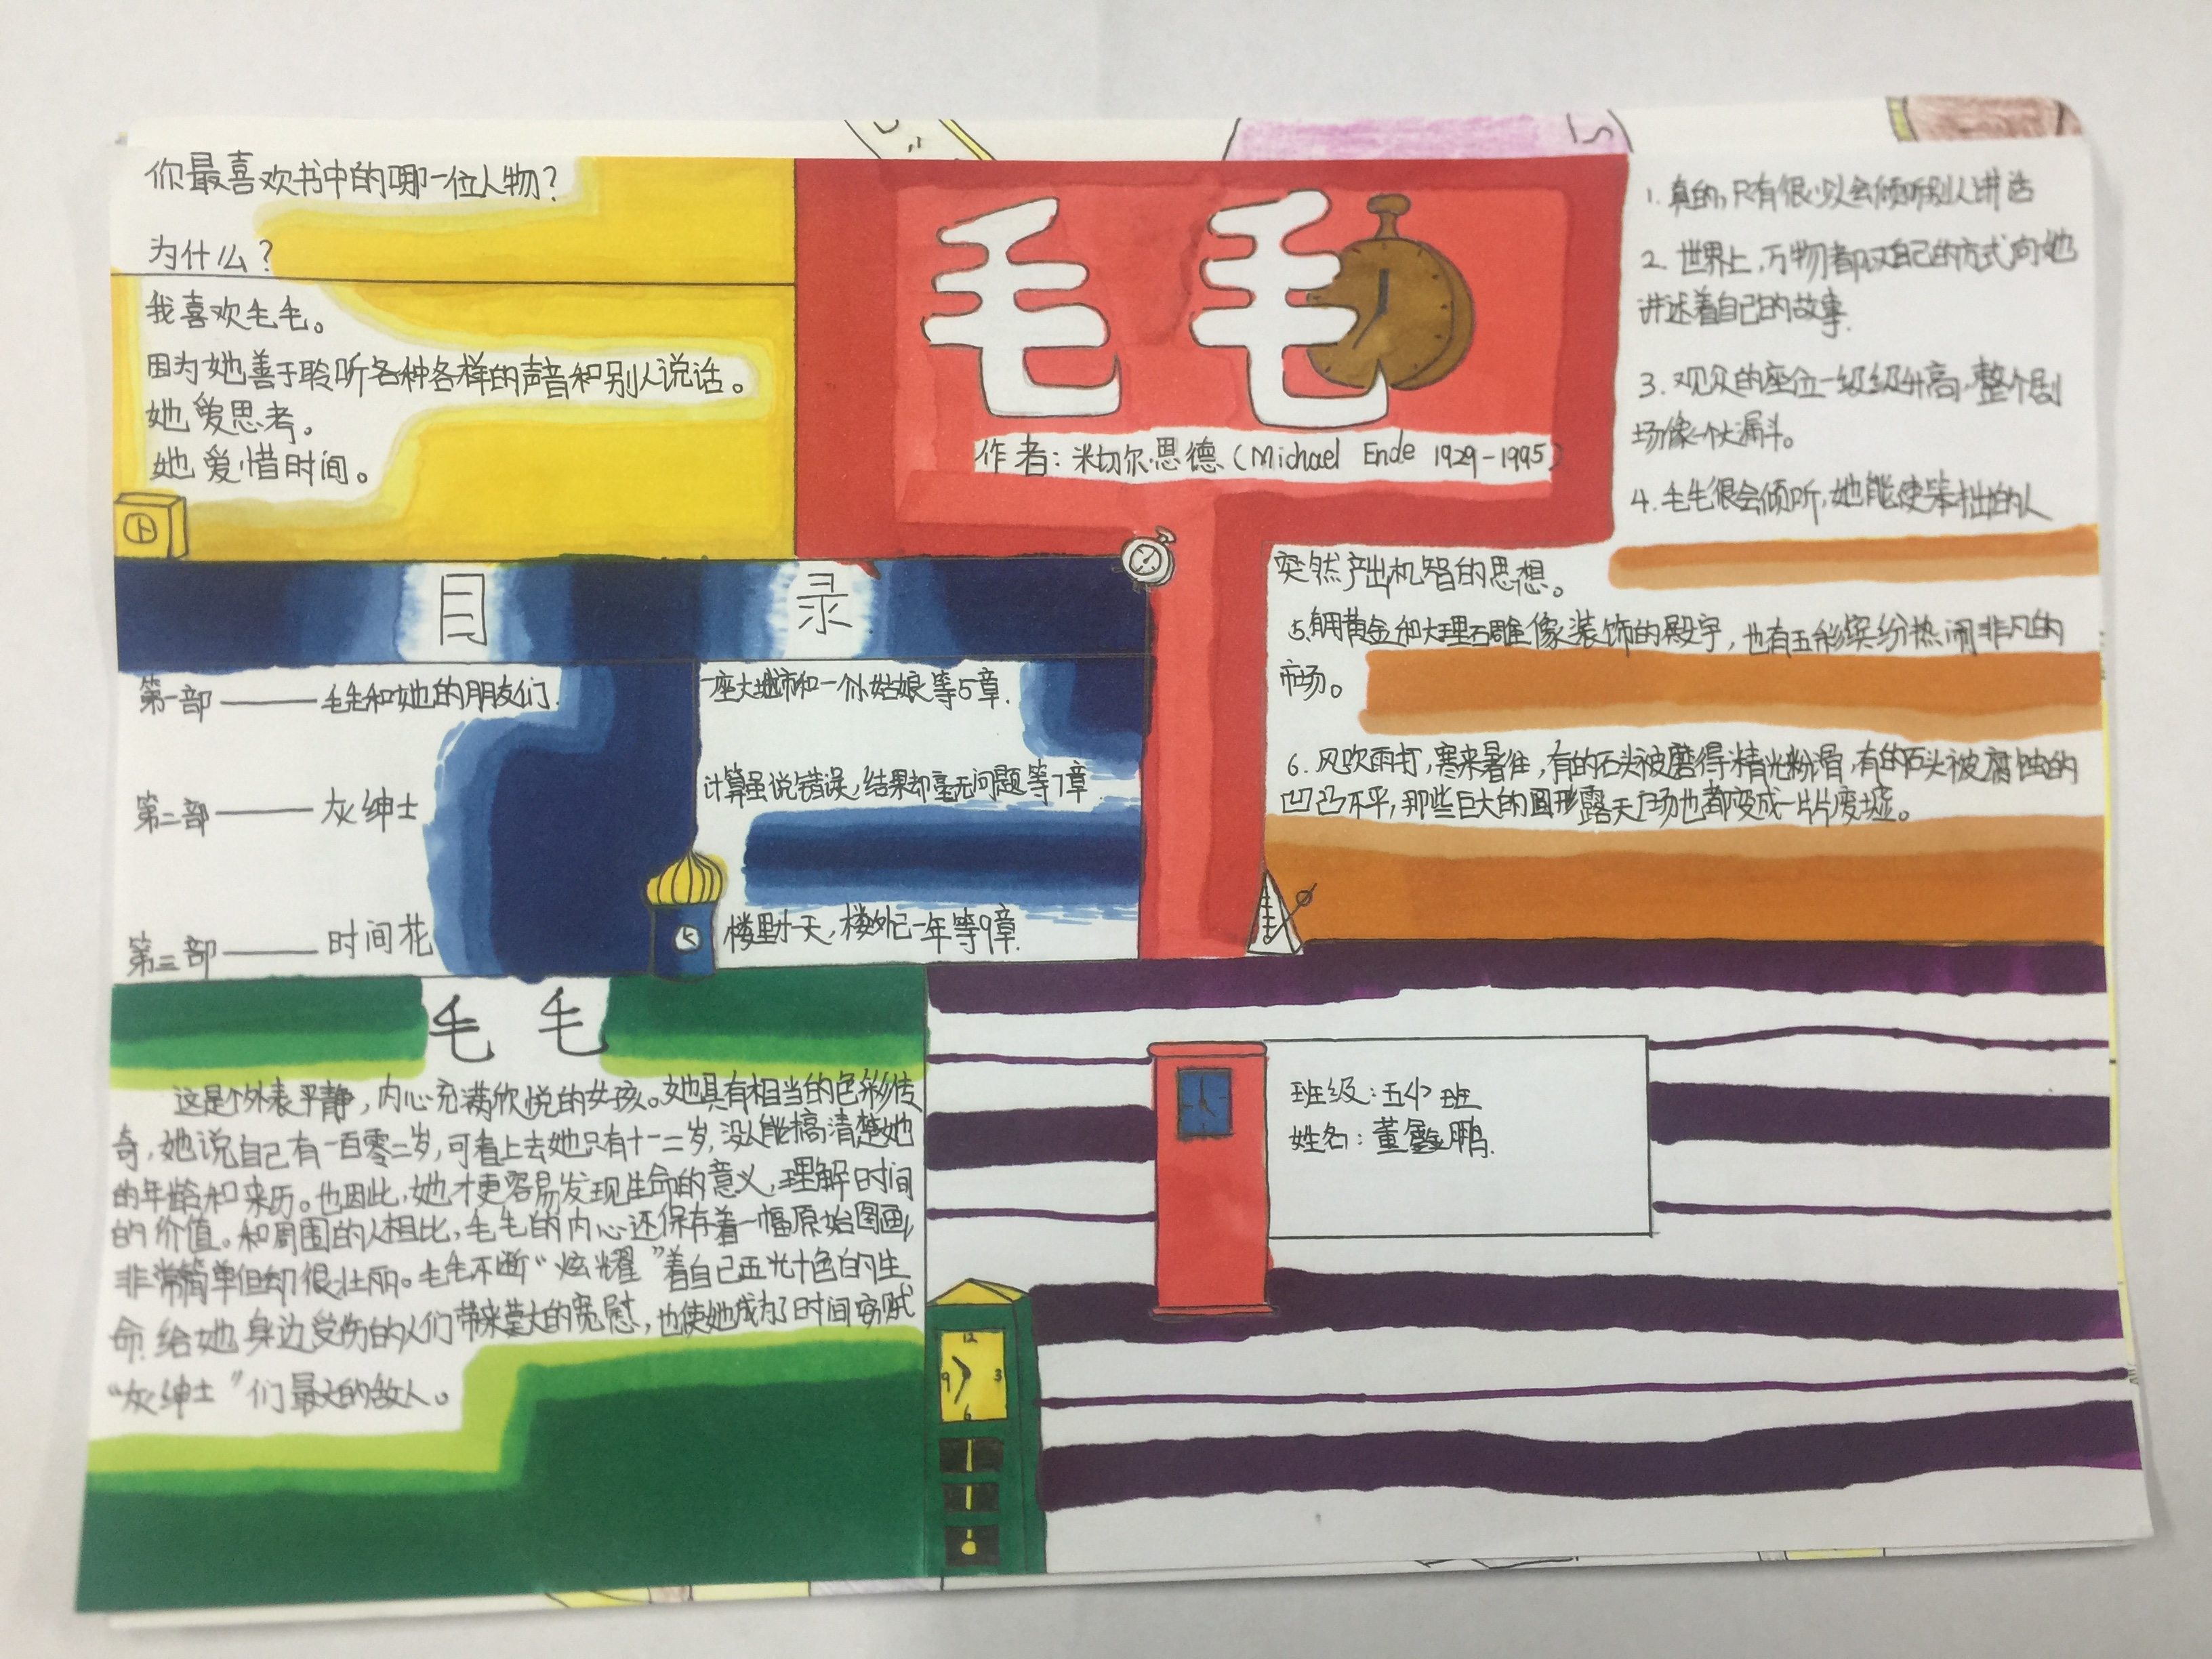 你最喜欢书中的哪一位人物?
为什么?
我喜欢毛毛。
因为她善于聆听各种各样的声音和别人说话。
她爱思考。
她爱惜时间。
毛毛
作者:米切尔·恩德(Michael Ende 1929-1995)
1. 真的,只有很少人会倾听别人讲话
2. 世界上,万物都以自己的方式向她
讲述着自己的故事.
3. 观众的座位一级级升高,整个剧
场像个大漏斗。
4. 毛毛很会倾听,她能使笨拙的人
突然产出机智的思想。
5.有用黄金和大理石雕像装饰的殿宇,也有五彩缤纷热闹非凡的
市场。
6. 风吹雨打,寒来暑往,有的石头被磨得精光粉滑,有的石头被腐蚀的
凹凸不平,那些巨大的圆形露天广场也都变成一片片废墟。
目录
第一部——毛毛和她的朋友们.
一座大城市和一个小姑娘等5章.
第二部——灰绅士
计算虽说错误,结果却毫无问题等7章.
第三部——时间花
楼里才一天,楼外已一年等9章.
毛毛
这是个外表平静,内心充满欣悦的女孩。她具有相当的色彩传
奇,她说自己有一百零二岁,可看上去她只有十一二岁,没人能搞清楚她
的年龄和来历。也因此,她才更容易发现生命的意义,理解时间
的价值。和周围的人相比,毛毛的内心还保存着一幅原始图画,
非常简单但却很壮丽。毛毛不断“炫耀”着自己五光十色的生
命.给她身边受伤的人们带来莫大的宽慰,也使她成为了时间窃贼
“灰绅士”们最大的敌人。
12
9 3
6
班级:五 班
姓名:董鑫鹏.